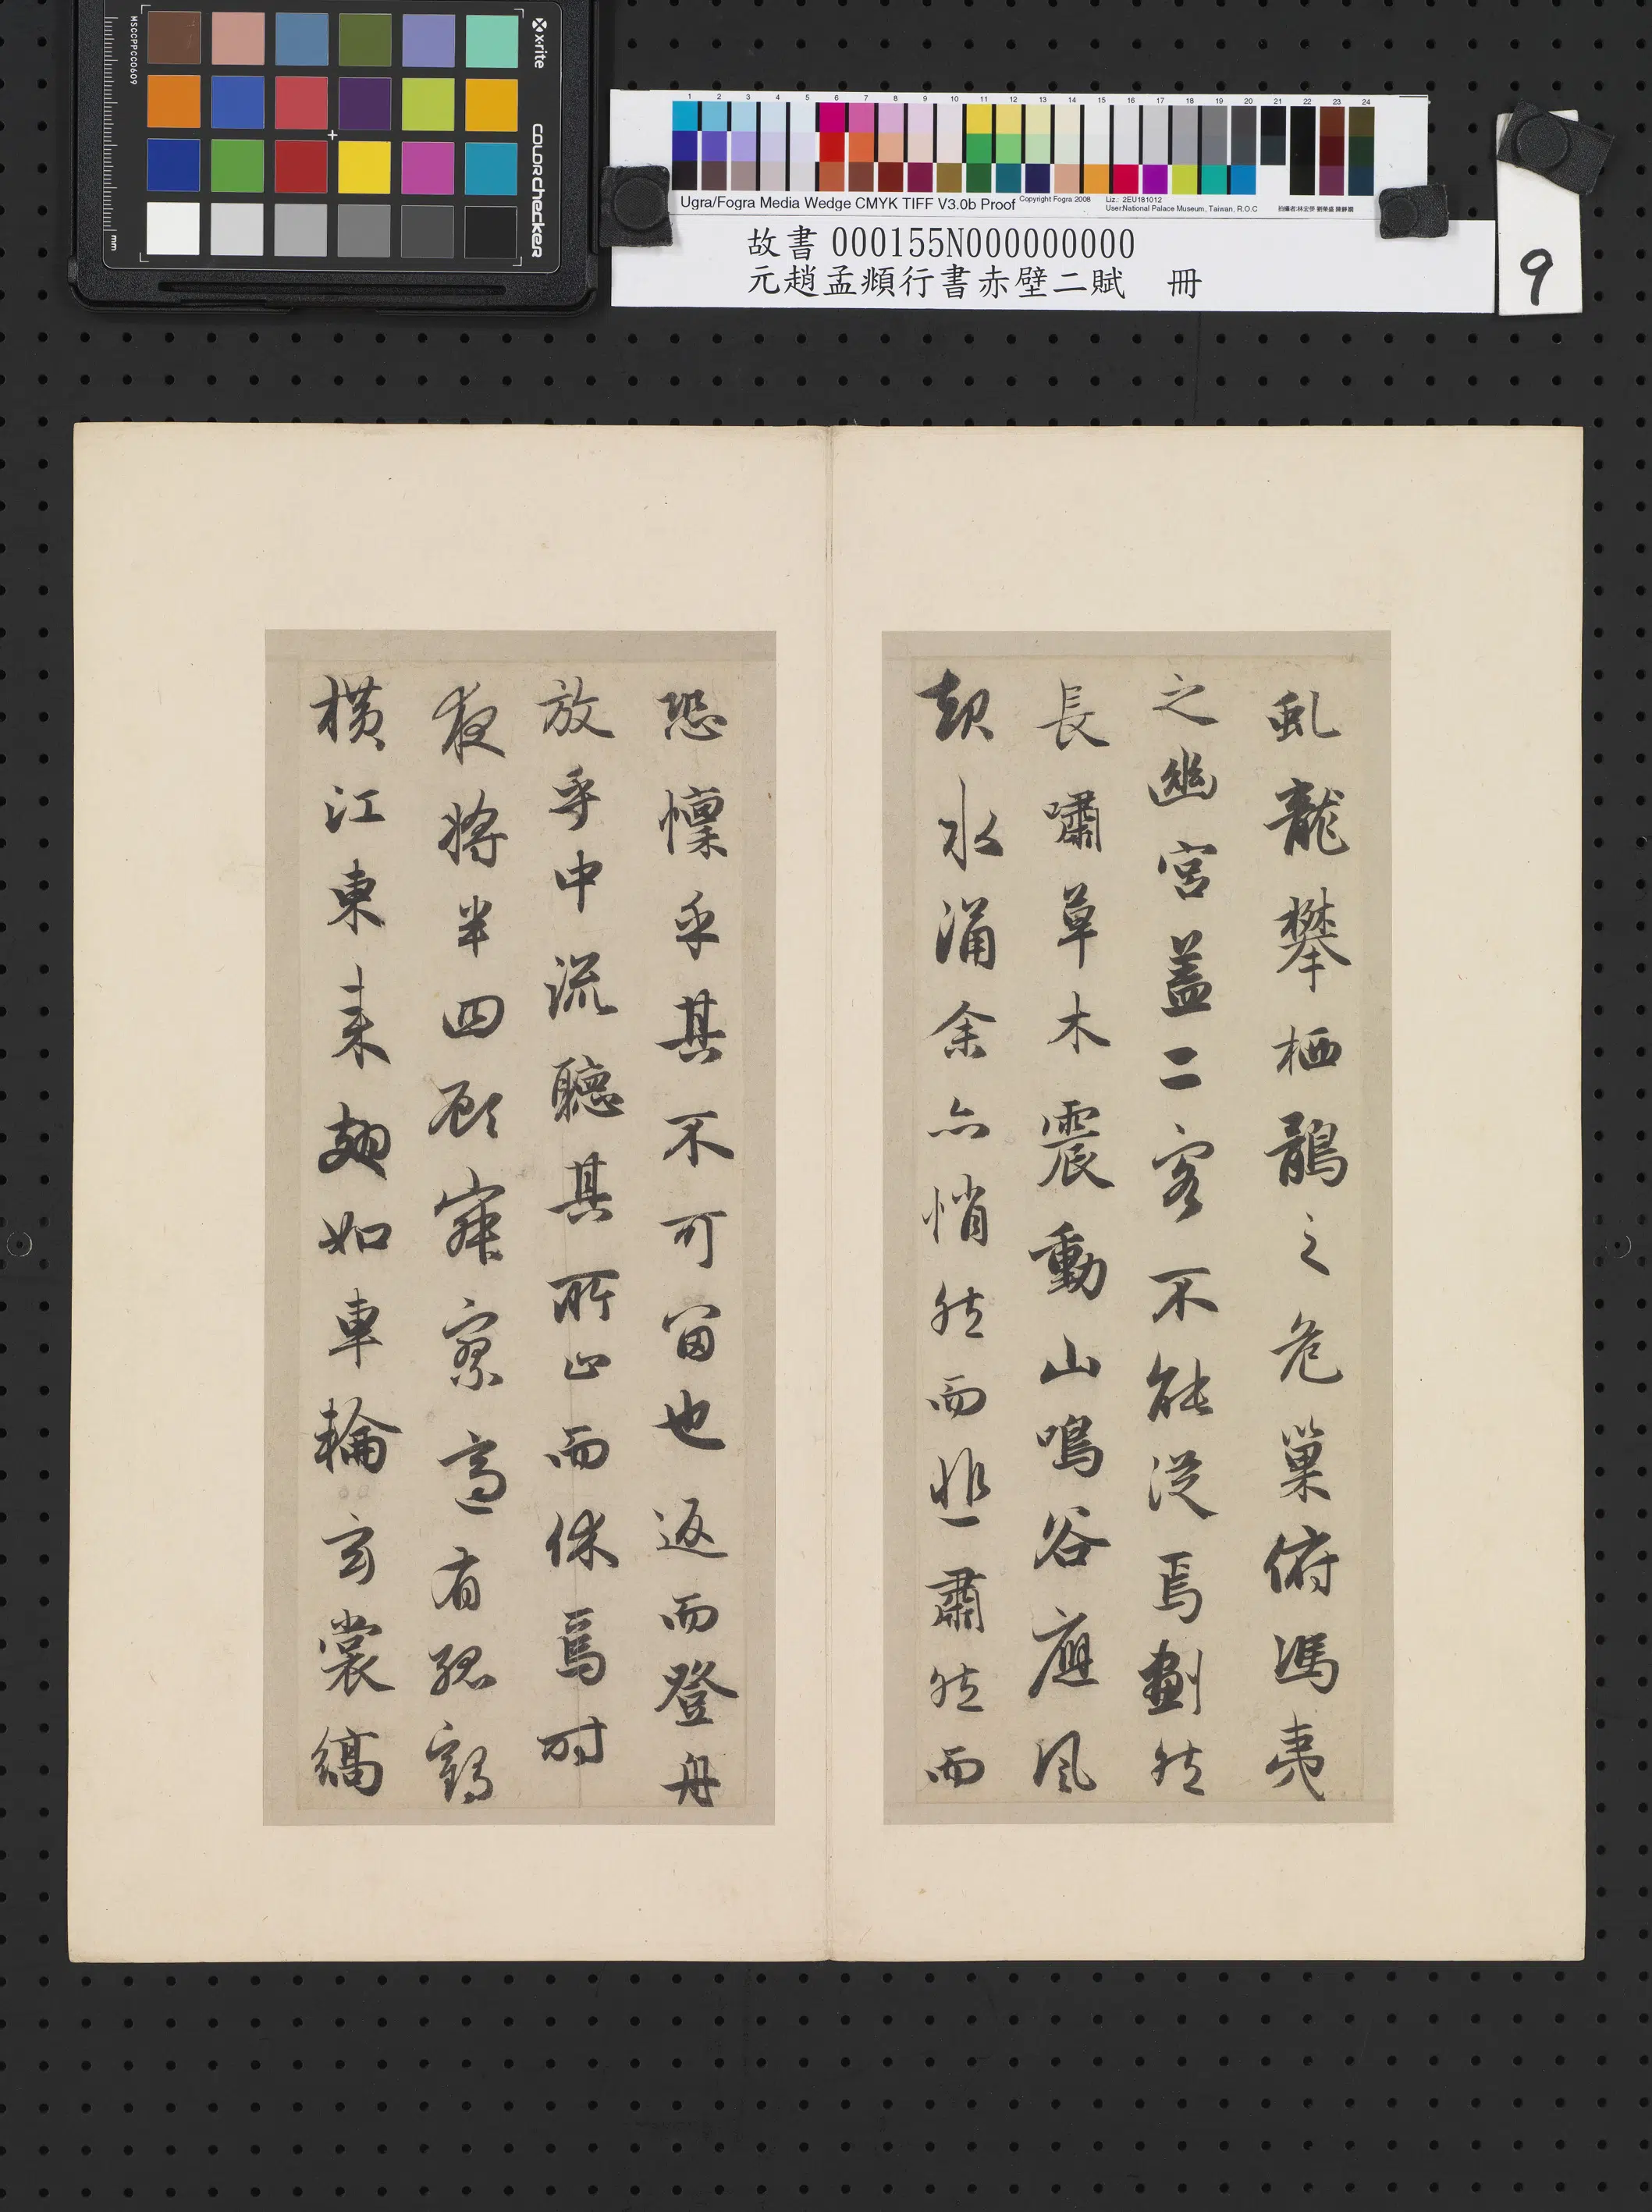 MSCCPPCC0609
x-rite
colorchecker
mm
1 2 3 4 5 6 7 8 9 10 11 12 13 14 15 16 17 18 19 20 21 22 23 24
Ugra/Fogra Media Wedge CMYK TIFF V3.0b Proof
Copyright Fogra 2008
Liz.: 2EU181012
User:National Palace Museum, Taiwan, R.O.C
故書 000155N000000000
元趙孟頫行書赤壁二賦 冊
9
虬龍攀栖鶻之危巢俯馮夷
之幽宮蓋二客不能從焉劃然
長嘯草木震動山鳴谷應風
起水涌余亦悄然而悲肅然而
恐懍乎其不可留也返而登舟
放乎中流聽其所止而休焉時
夜將半四顧寂寥適有孤鶴
橫江東來翅如車輪玄裳縞